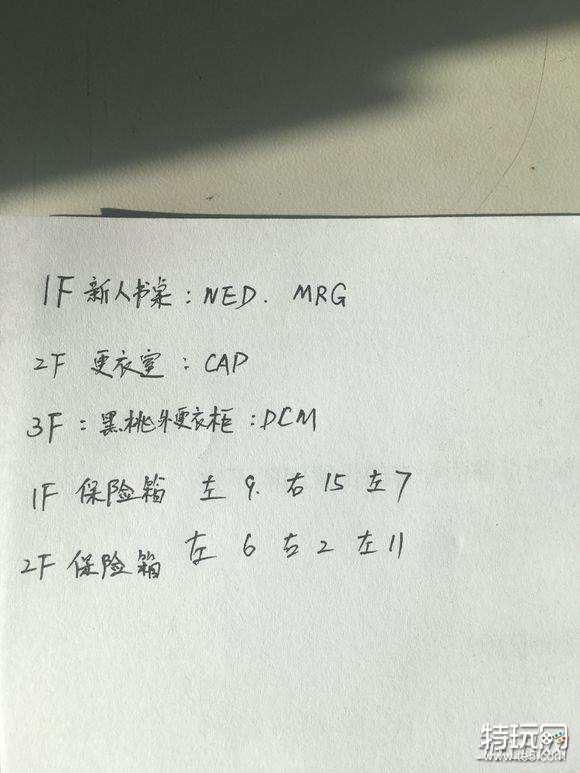 1F 新人书桌：NED. MRG
2F 更衣室：CAP
3F：黑桃外更衣柜：DCM
1F 保险箱 左 9. 右 15 左 7
2F 保险箱 左 6 右 2 左 11
特玩网